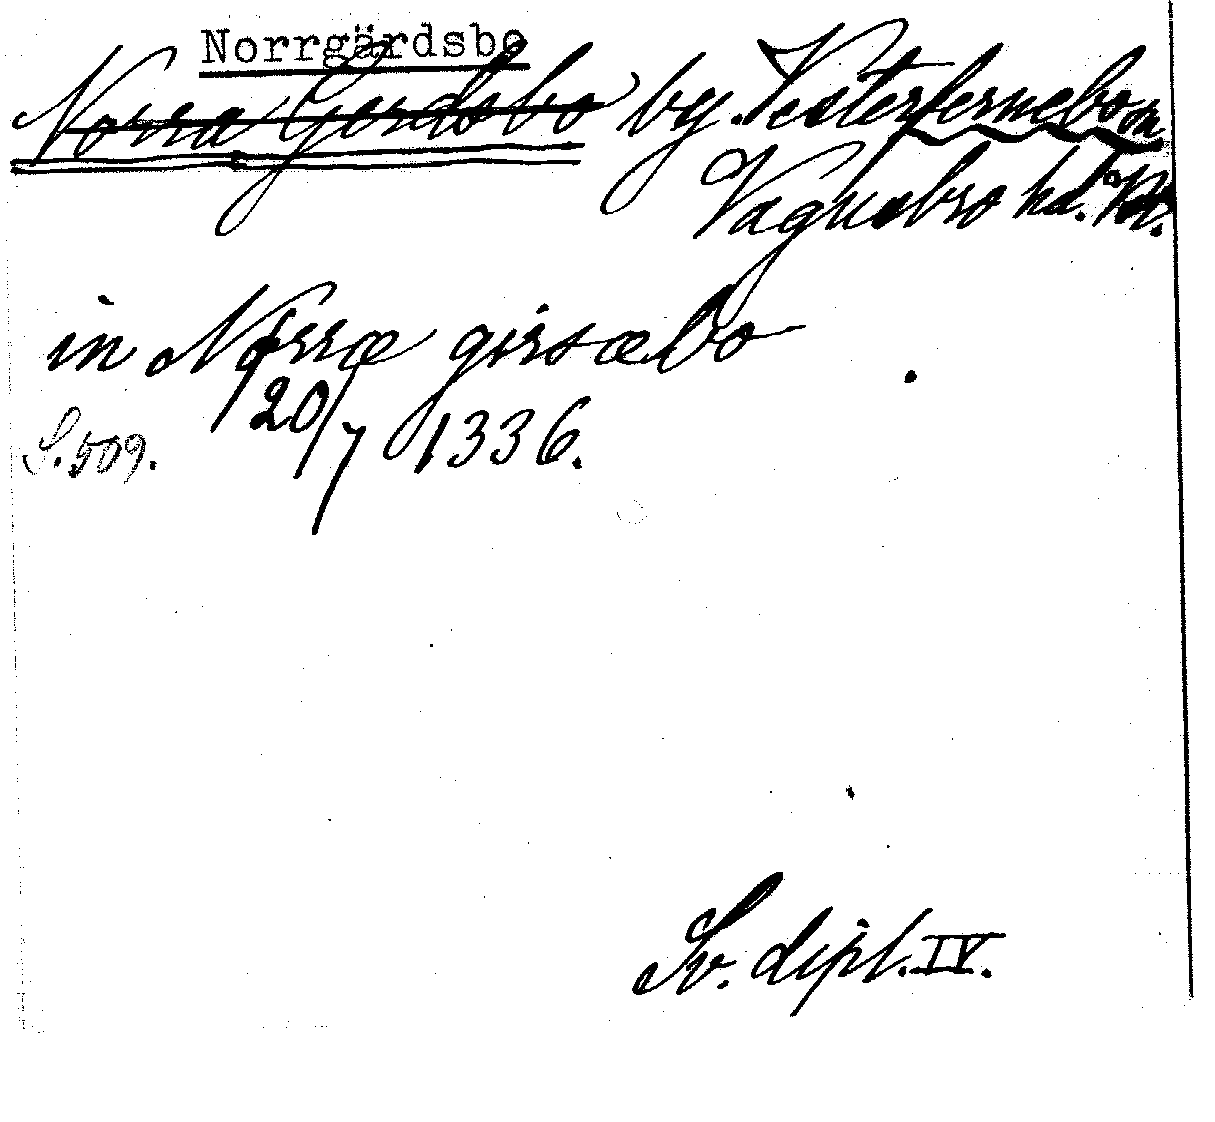 Norrgärdsbo
Norra Gerdsbo by. Vesterfernebo sn
Vagnsbro hd.
in Norræ girsæbo
20/7 1336.
S. 509.
Sv. dipl. IV.